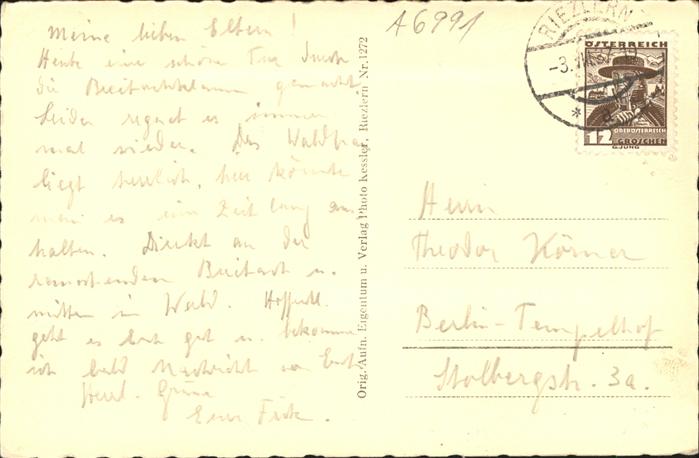 Meine lieben Eltern!
Heute eine schöne Tour durch
die Breitachklamm gemacht.
Leider regnet es immer
mal wieder. Das
liegt herrlich, hier könnte
man es eine Zeit lang aus
halten. Direkt an der
rauschenden Breitach u.
mitten im Wald. Hoffentl.
geht es Euch gut u. bekomme
ich bald Nachricht von Euch.
Herzl. Grüße
Eure
A6991
Orig.-Aufn. Eigentum u. Verlag Photo Kessler, Riezlern Nr. 1272
RIEZLERN
ÖSTERREICH
OBERÖSTERREICH
12 GROSCHEN
Herrn
Theodor Körner
Berlin-Tempelhof
Stolbergstr. 3a.